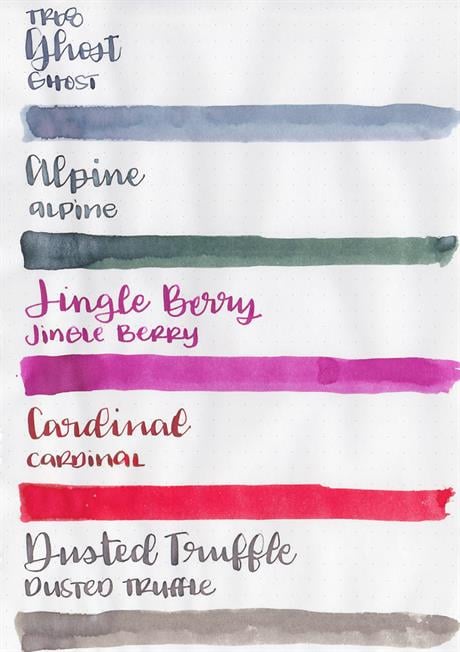 TROO
Ghost
GHOST
Alpine
ALPINE
Jingle Berry
JINGLE BERRY
Cardinal
CARDINAL
Dusted Truffle
DUSTED TRUFFLE